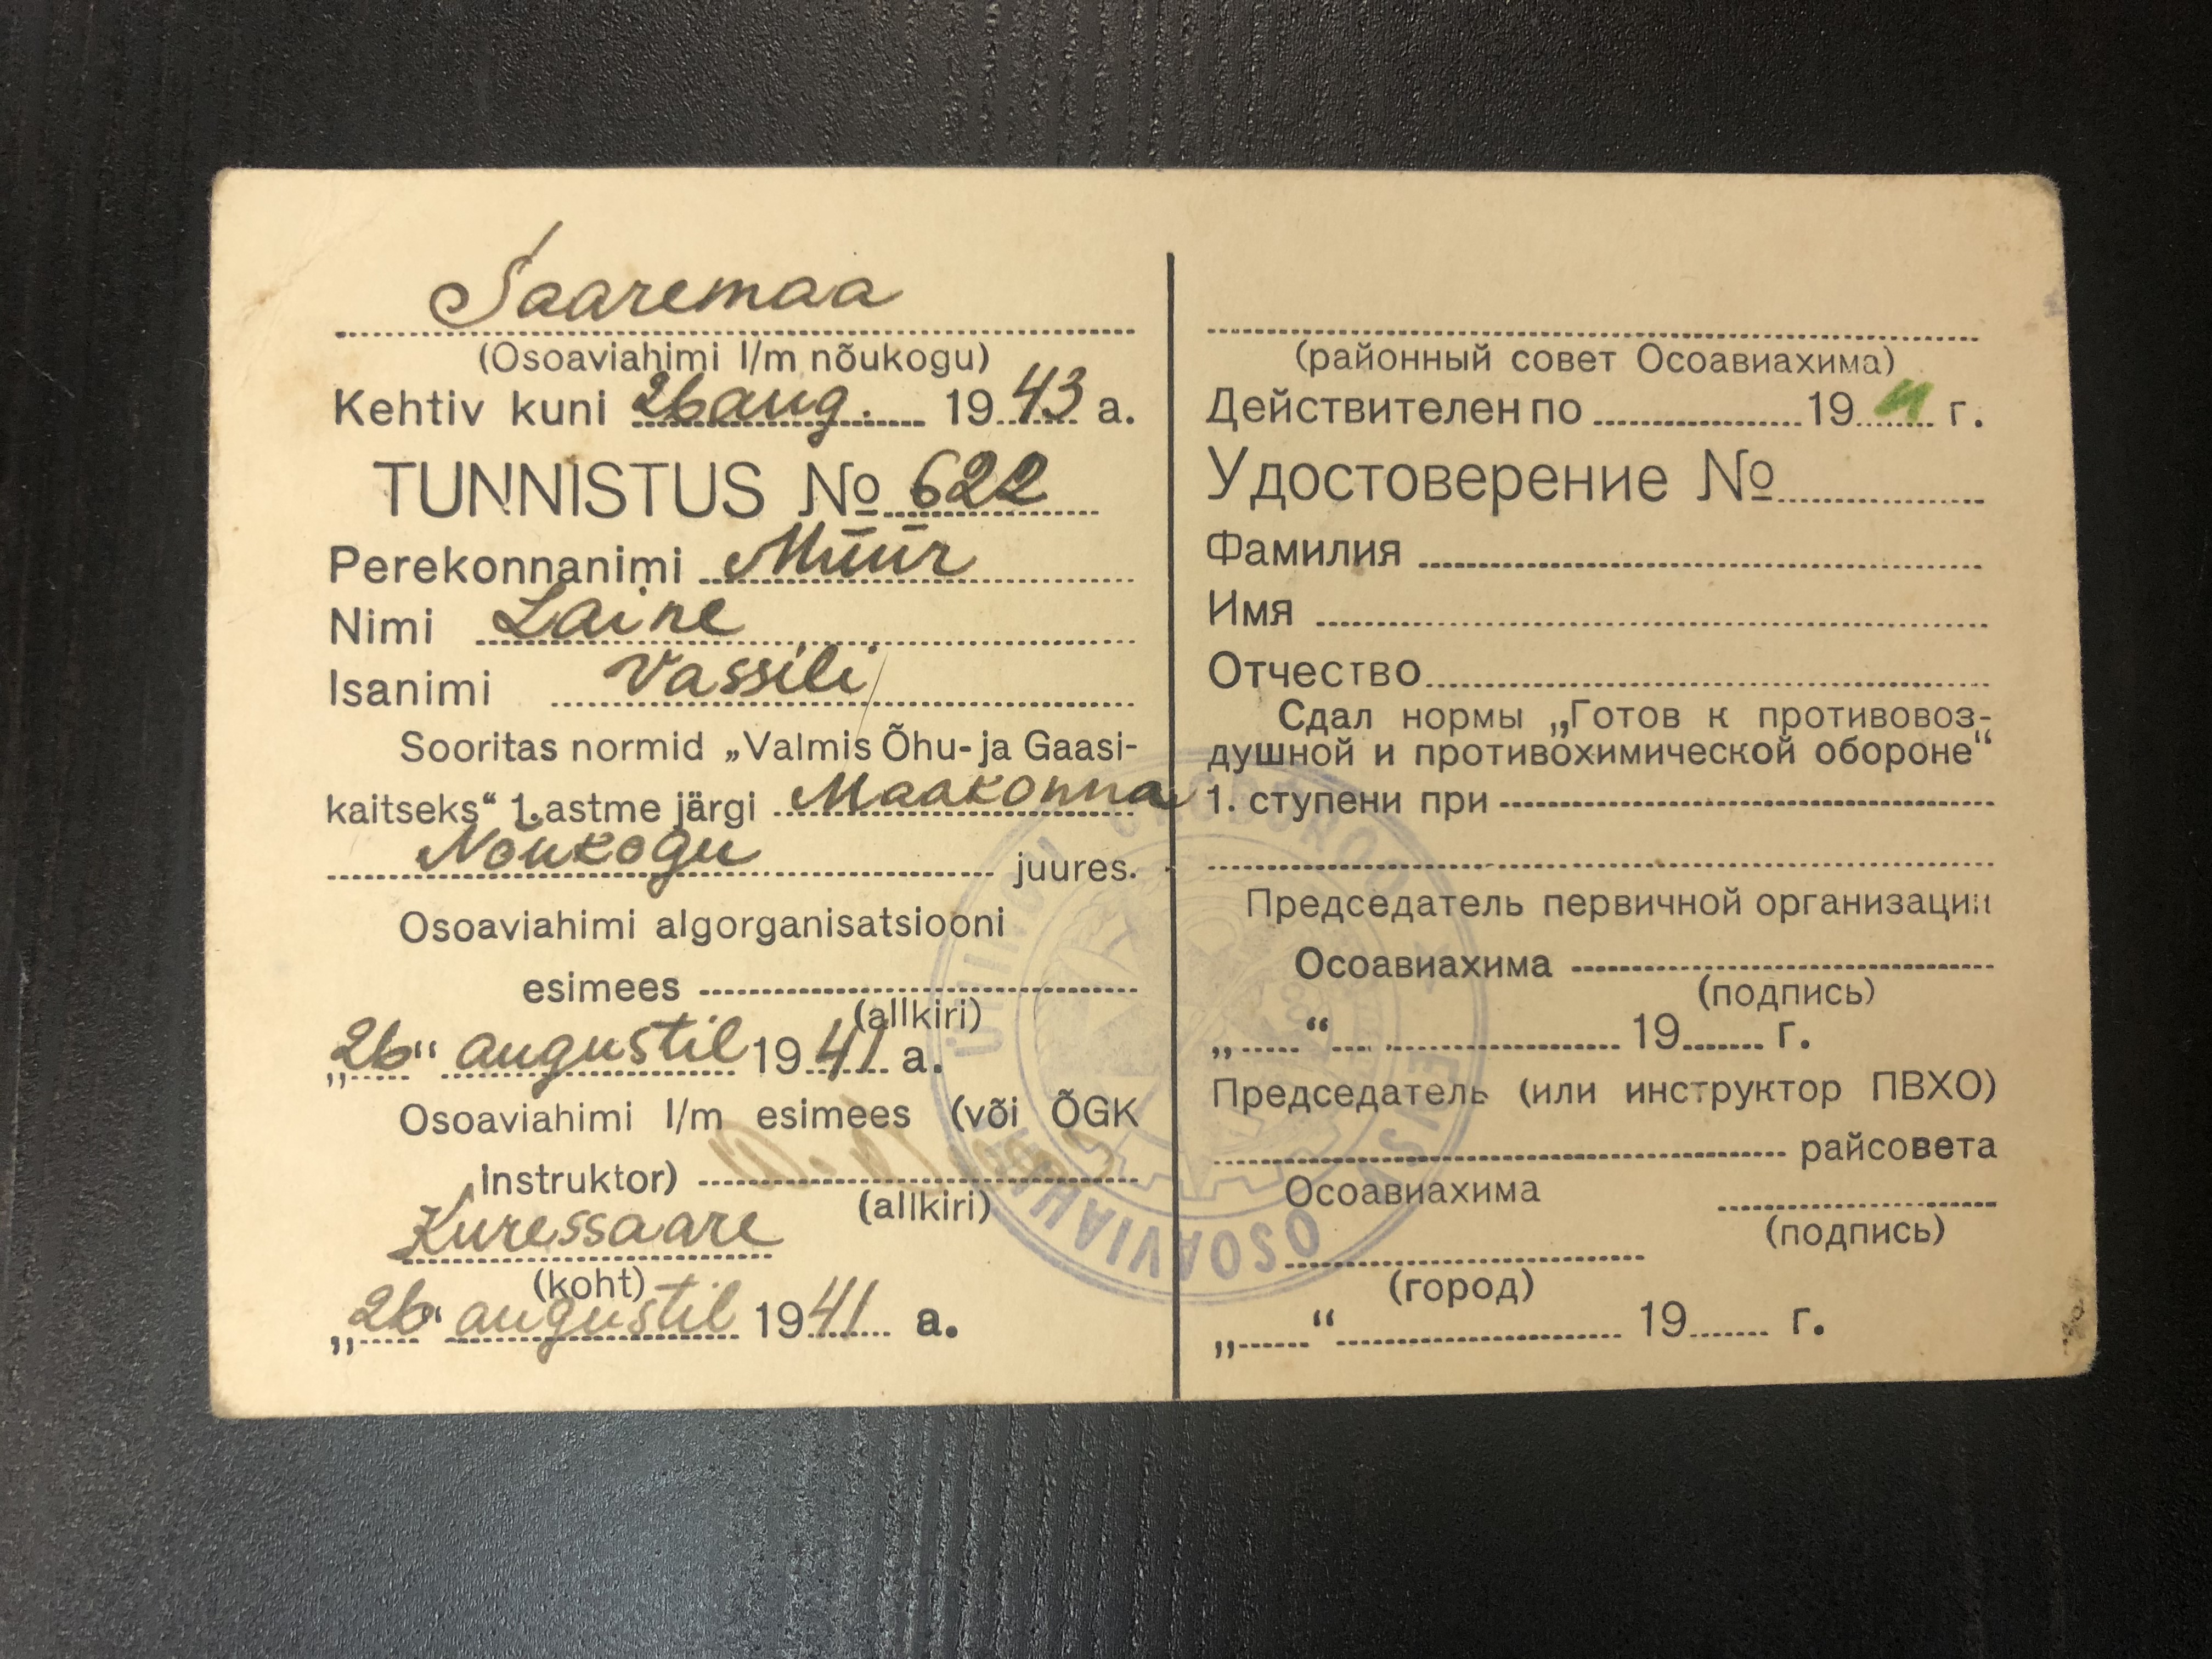 Saaremaa
(Osoaviahimi l/m nõukogu)
Kehtiv kuni 26 aug. 1943 a.
TUNNISTUS № 622
Perekonnanimi Müür
Nimi Laine
Isanimi Vassili
Sooritas normid „Valmis Õhu- ja Gaasi-
kaitseks“ 1. astme järgi Maakonna
Nõukogu juures.
Osoaviahimi algorganisatsiooni
esimees
(allkiri)
„26“ augustil 1941 a.
Osoaviahimi l/m esimees (või ÕGK
Instruktor)
(allkiri)
Kuressaare
(koht)
„26“ augustil 1941 a.
(районный совет Осоавиахима)
Действителен по 19 г.
Удостоверение №
Фамилия
Имя
Отчество
Сдал нормы „Готов к противовоз-
душной и противохимической обороне“
1. ступени при
Председатель первичной организации
Осоавиахима
(подпись)
„ “ 19 г.
Председатель (или инструктор ПВХО)
райсовета
Осоавиахима
(подпись)
(город)
„ “ 19 г.
OSOAVIAHIMI